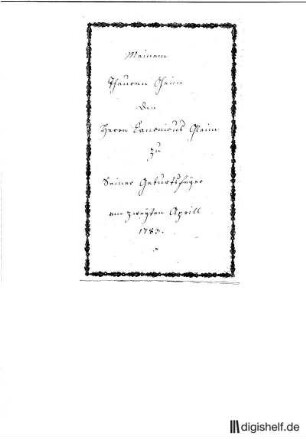 Meinem
Theuren Oheim
Dem
Herrn Canonicus Gleim
zu
Seiner Geburtsfeyer
am zweyten Aprill
1783.
digishelf.de